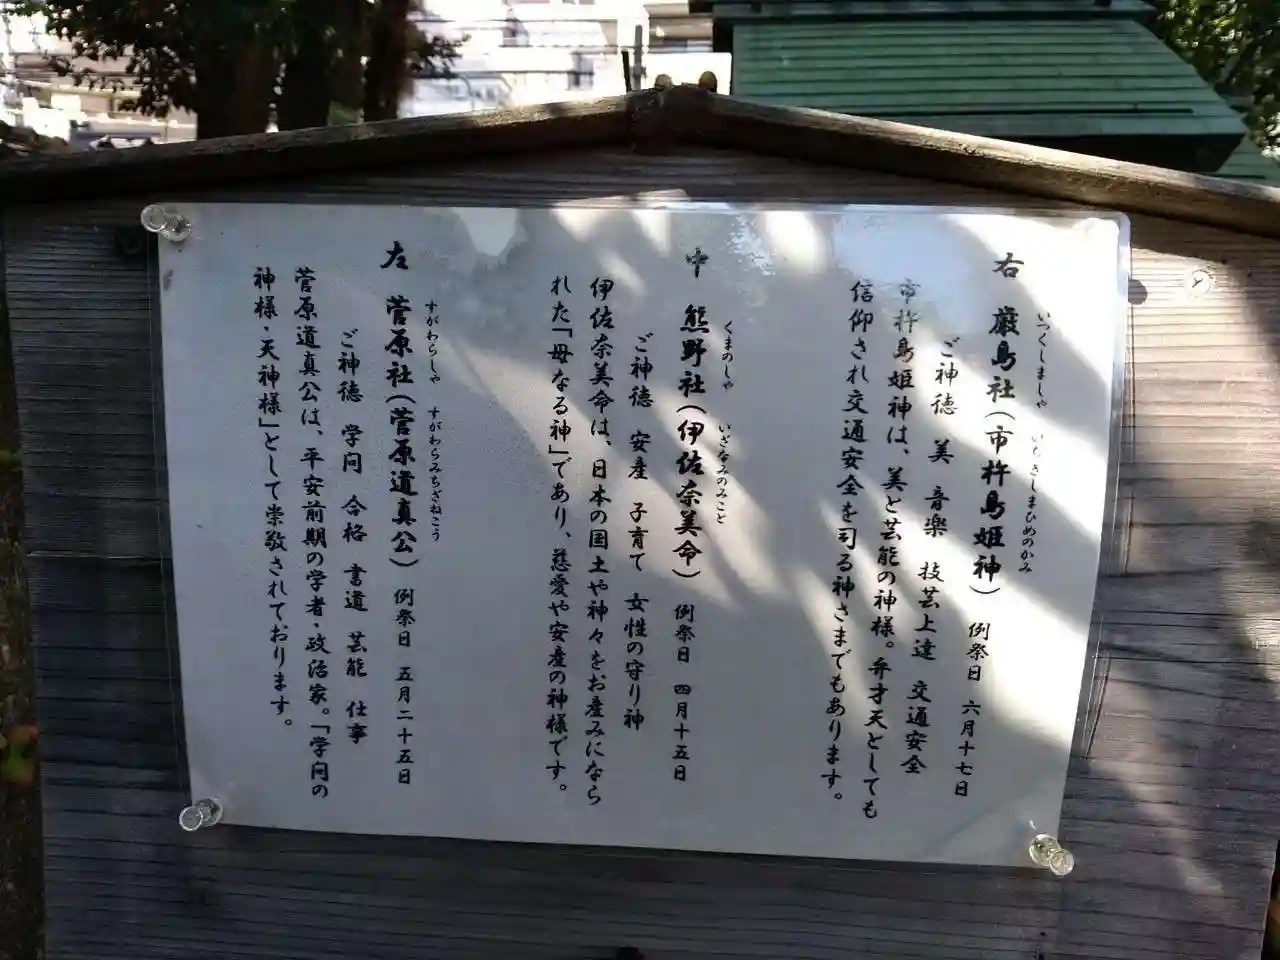 いつくしましゃ いちきしまひめのかみ
右 厳島社(市杵島姫神) 例祭日 六月十七日
ご神徳 美 音楽 技芸上達 交通安全
市杵島姫神は、美と芸能の神様。弁才天としても
信仰され交通安全を司る神さまでもあります。
くまのしゃ いざなみのみこと
中 熊野社(伊佐奈美命) 例祭日 四月十五日
ご神徳 安産 子育て 女性の守り神
伊佐奈美命は、日本の国土や神々をお産みになら
れた「母なる神」であり、慈愛や安産の神様です。
すがわらしゃ すがわらみちざねこう
左 菅原社(菅原道真公) 例祭日 五月二十五日
ご神徳 学問 合格 書道 芸能 仕事
菅原道真公は、平安前期の学者・政治家。「学問の
神様・天神様」として崇敬されております。